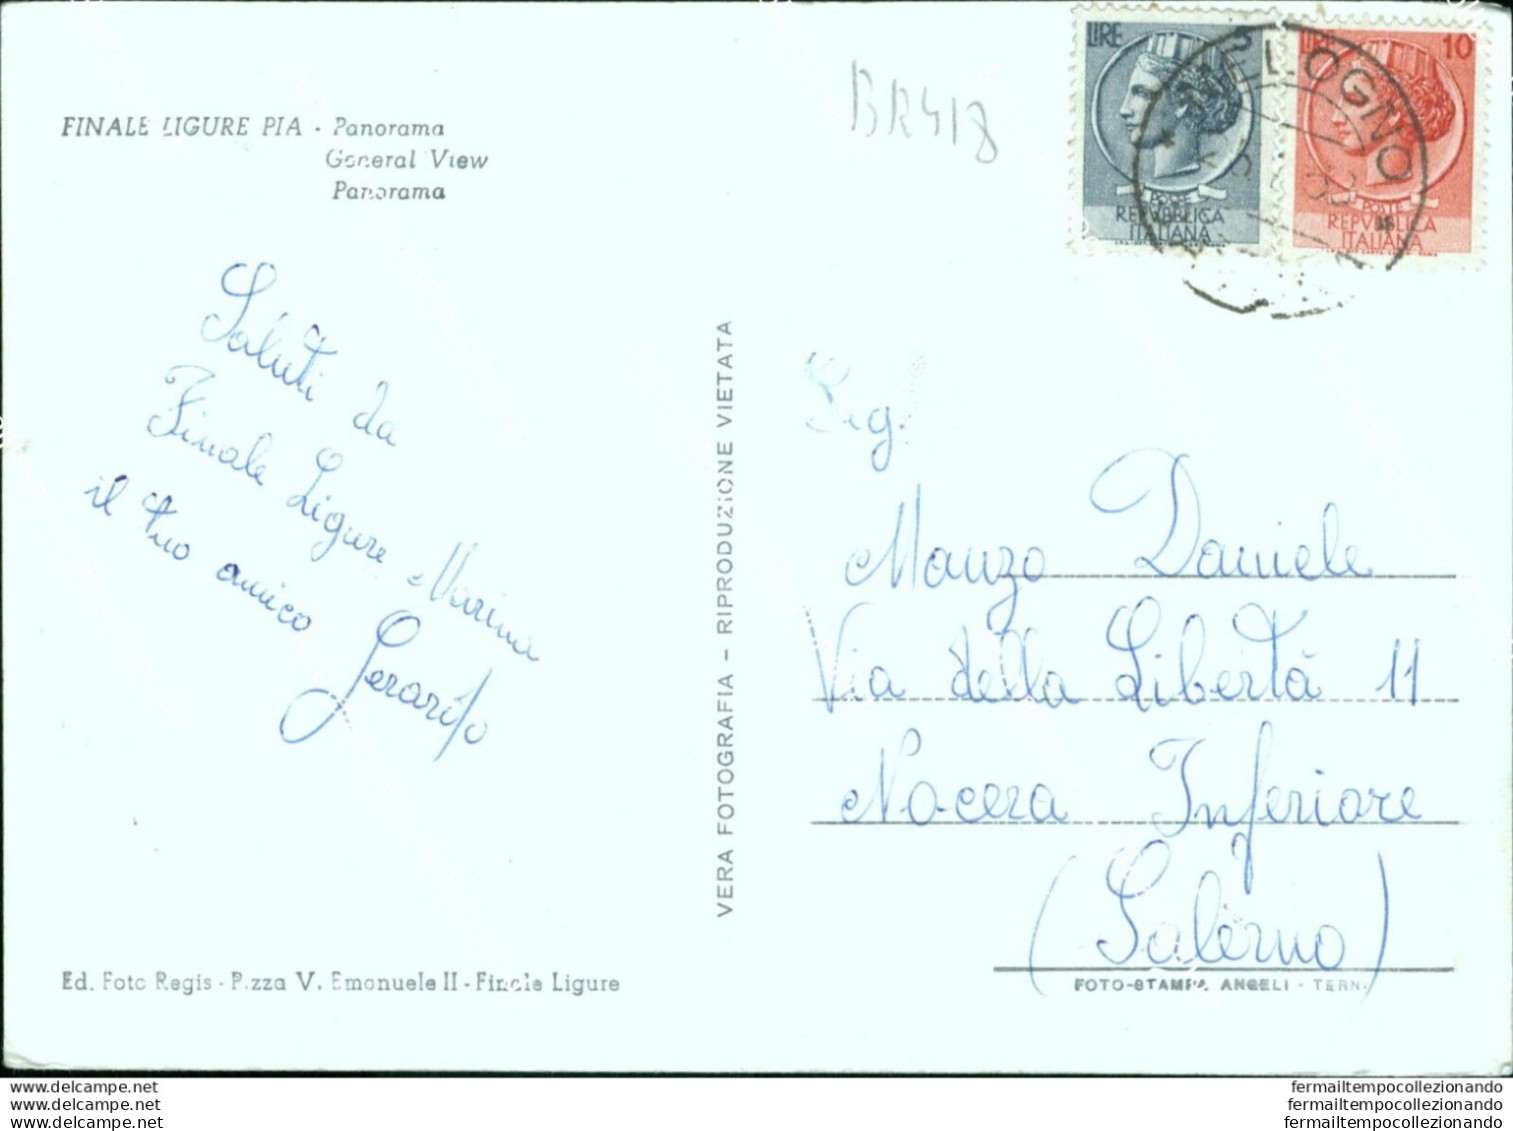 FINALE LIGURE PIA - Panorama
General View
Panorama
BR418
LIRE 5
POSTE
REPVBBLICA
ITALIANA
LIRE 10
POSTE
REPVBBLICA
ITALIANA
Saluti da
Finale Ligure Marina
il tuo amico
Gerardo
VERA FOTOGRAFIA - RIPRODUZIONE VIETATA
Sig.
Manzo Daniele
Via della Libertà 11
Nocera Inferiore
(Salerno)
Ed. Foto Regis - P.zza V. Emanuele II - Finale Ligure
FOTO-STAMPA ANGELI - TERNI
www.delcampe.net
www.delcampe.net
www.delcampe.net
fermailtempocollezionando
fermailtempocollezionando
fermailtempocollezionando